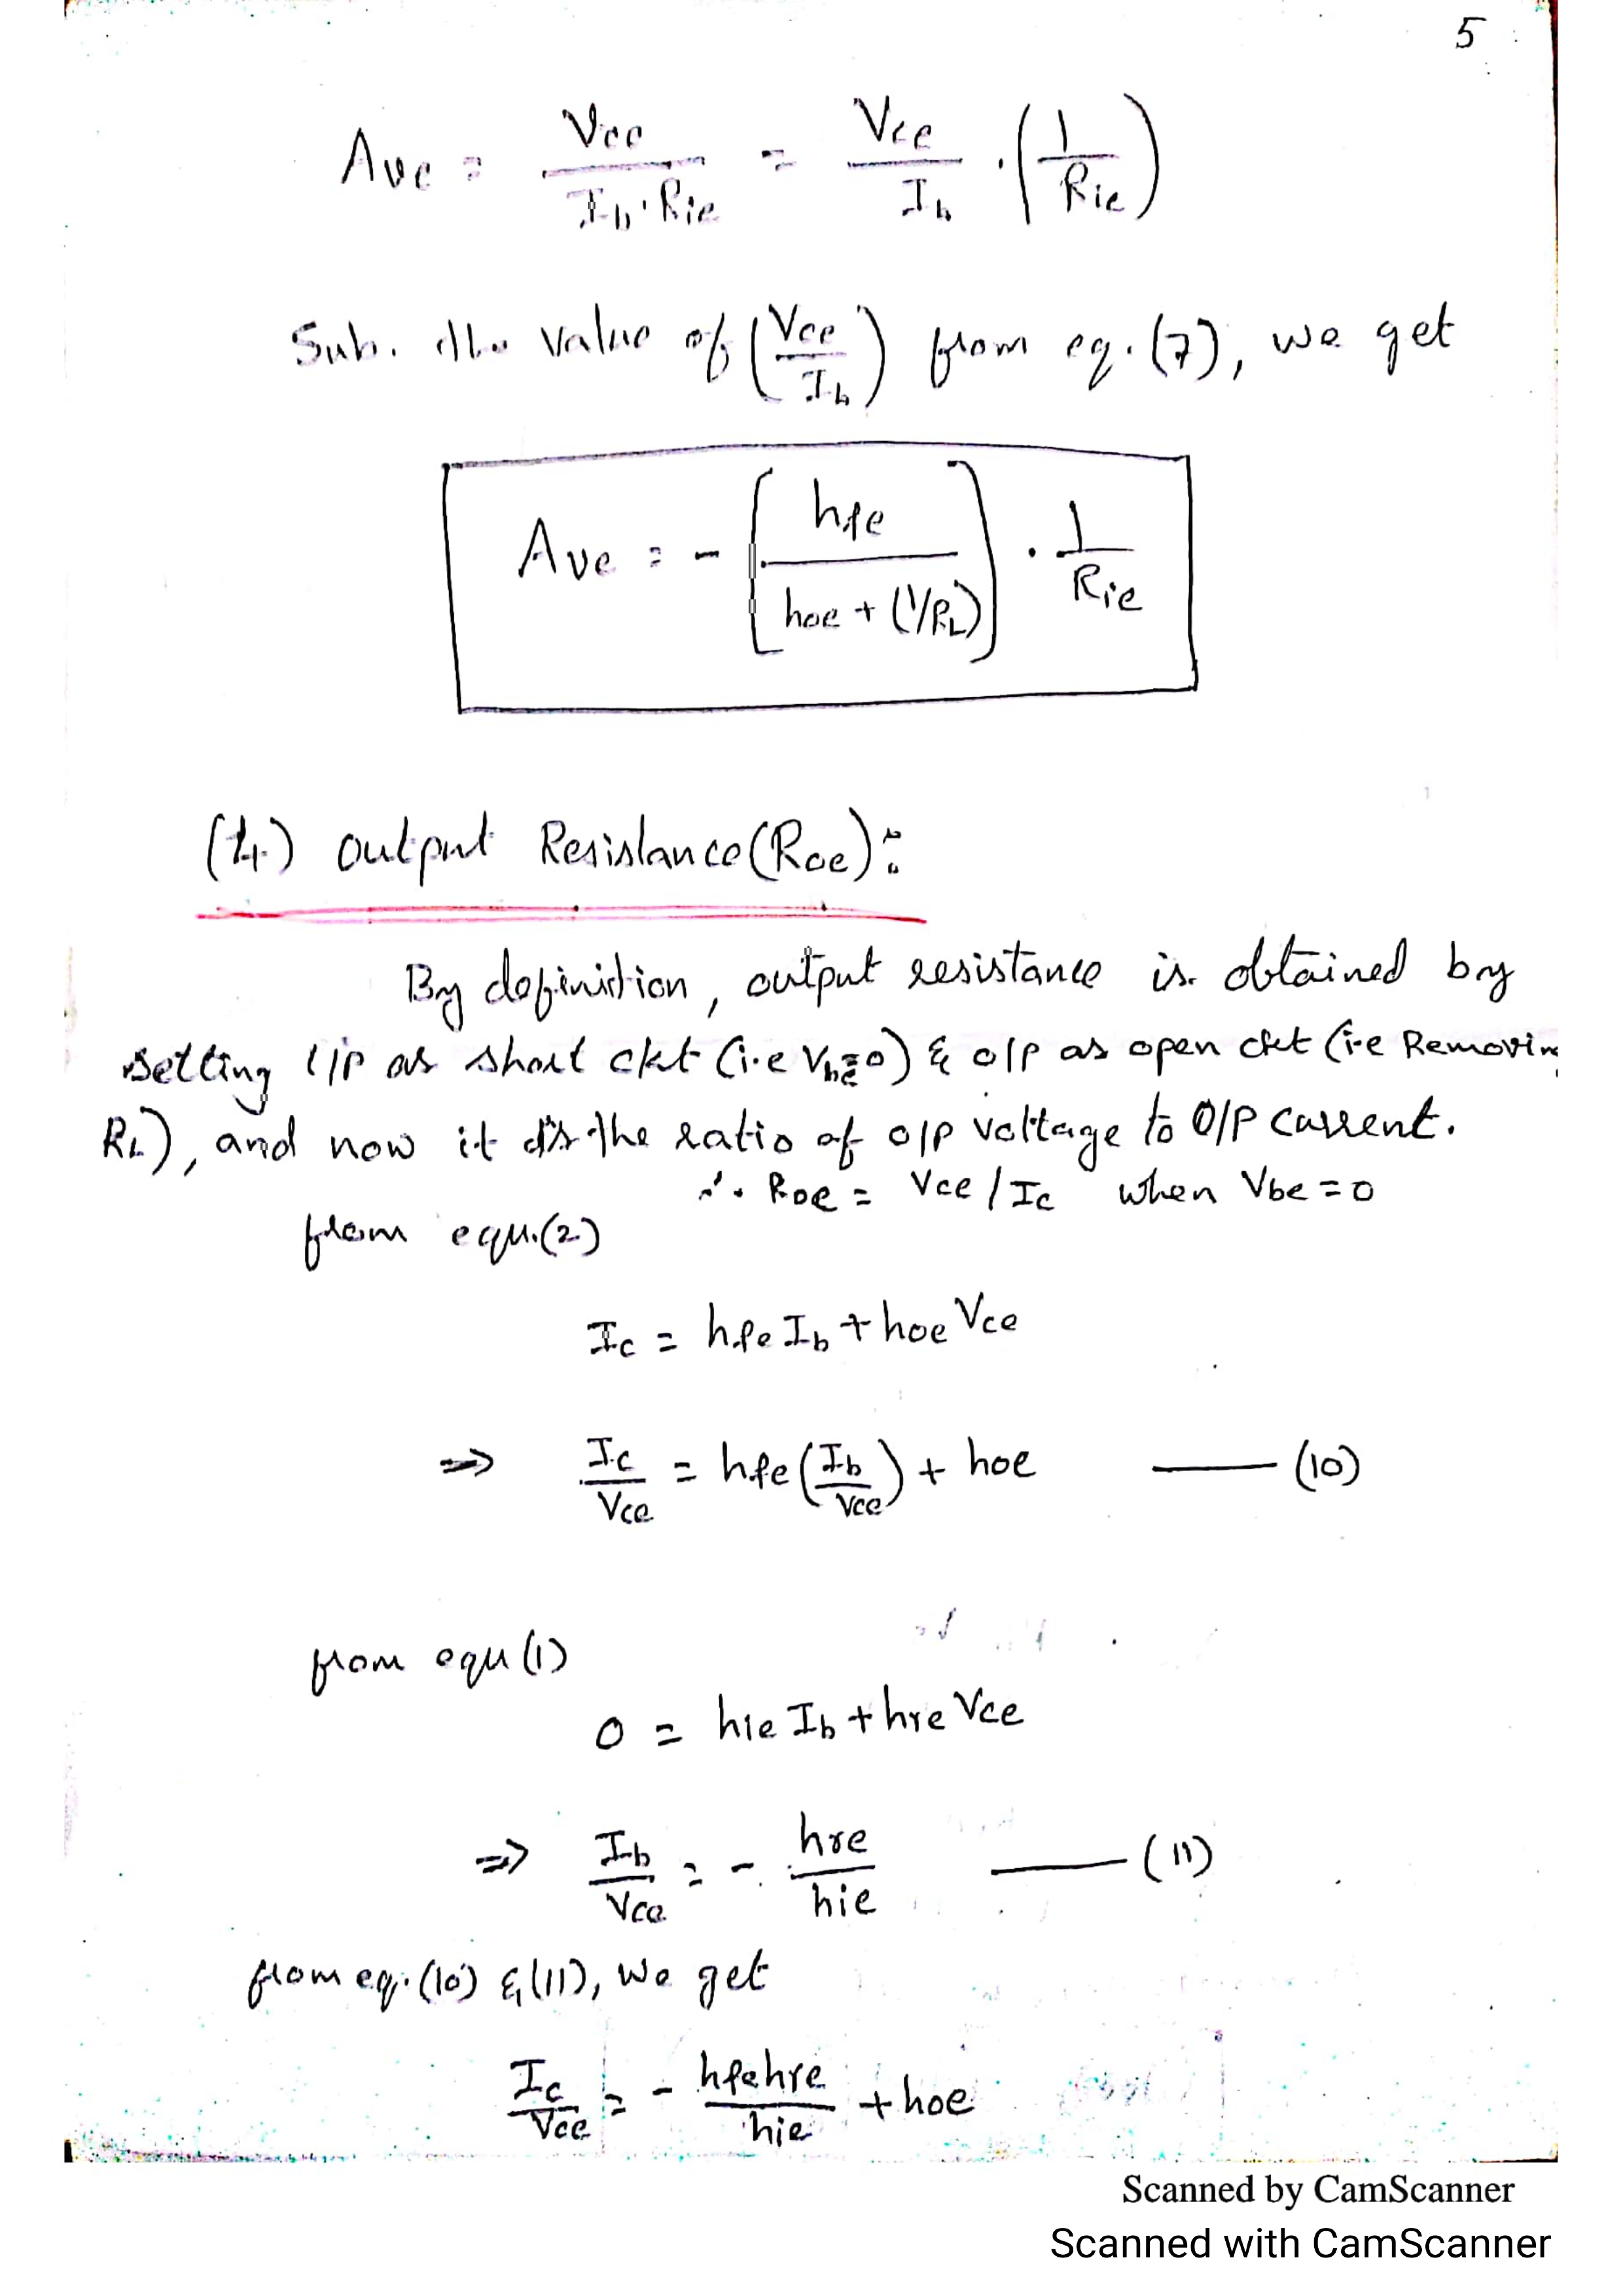 5
Ave = Vce / Ib·Rie = Vce / Ib · (1 / Rie)
Sub. the value of (Vce / Ib) from eq. (7), we get
Ave = - [hfe / hoe + (1/RL)] · 1 / Rie
(4) Output Resistance (Roe):
By definition, output resistance is obtained by
setting i/p as short ckt (i.e Vbe=0) & o/p as open ckt (i.e Removin
RL), and now it is the ratio of o/p voltage to O/P current.
∴ Roe = Vce / Ic when Vbe = 0
from equ.(2)
Ic = hfe Ib + hoe Vce
=> Ic / Vce = hfe (Ib / Vce) + hoe —— (10)
from equ (1)
0 = hie Ib + hre Vce
=> Ib / Vce = - hre / hie —— (11)
from eq. (10) & (11), we get
Ic / Vce = - hfe hre / hie + hoe
Scanned by CamScanner
Scanned with CamScanner